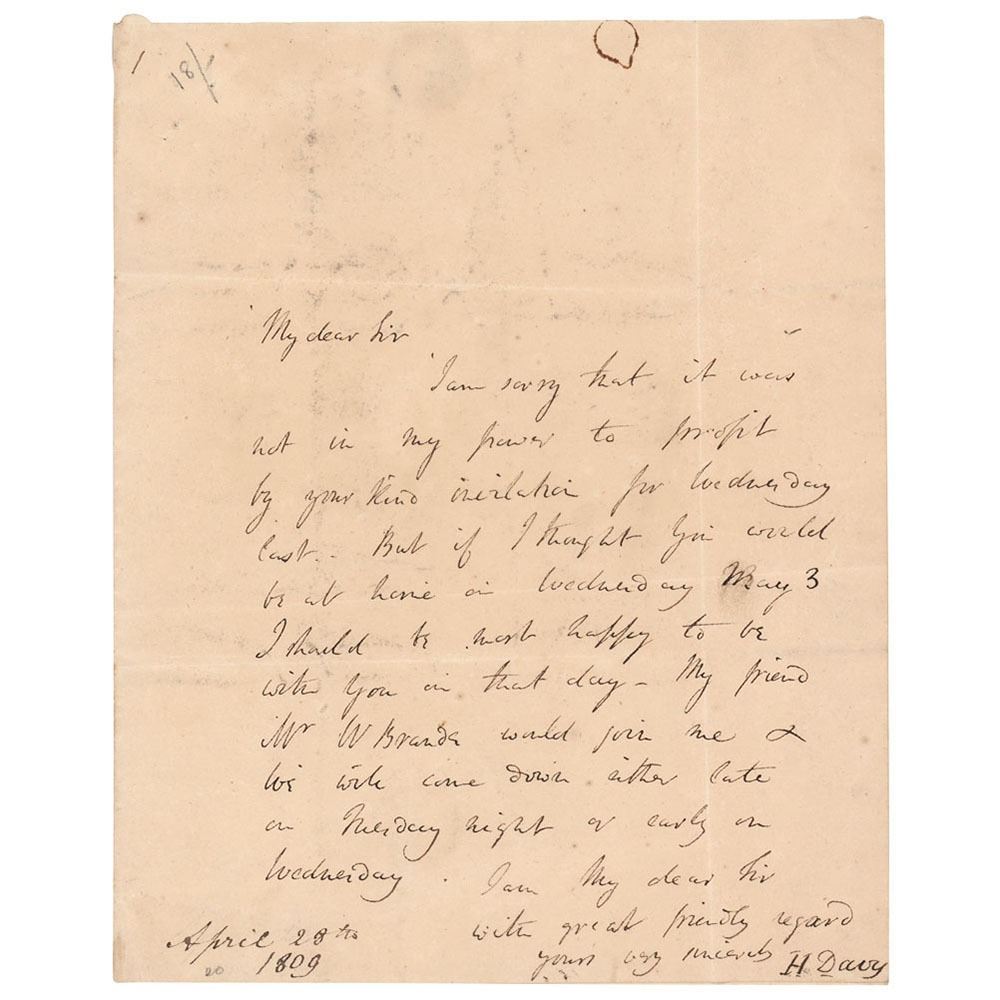 1
18/-
My dear Sir
I am sorry that it was
not in my power to profit
by your kind invitation for Wednesday
last. - But if I thought you would
be at home on Wednesday May 3
I should be most happy to be
with you on that day - My friend
Mr W Brande would join me &
we will come down either late
on Tuesday night or early on
Wednesday . I am My dear Sir
with great friendly regard
yours very sincerely H Davy
April 28th
1809
20